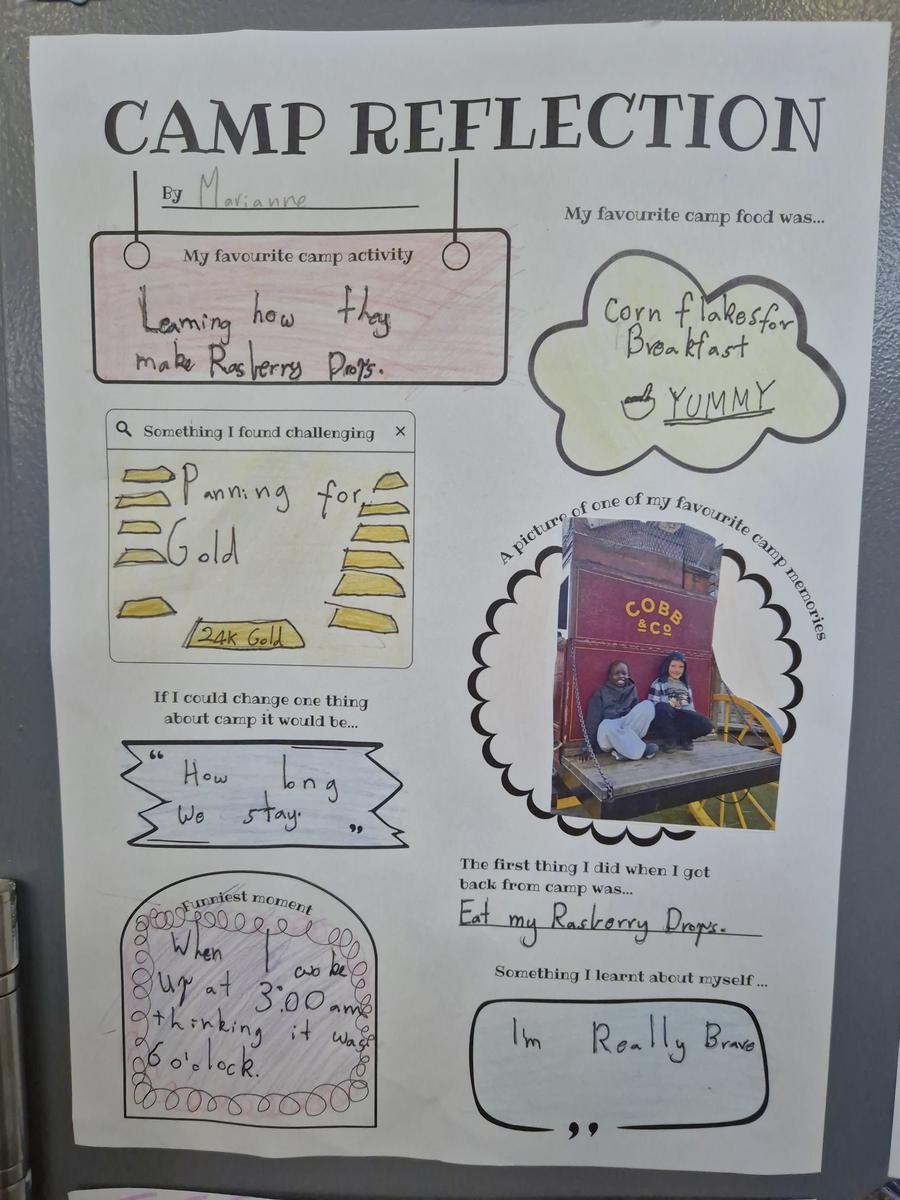 CAMP REFLECTION
By Marianne
My favourite camp activity
Learning how they
make Rasberry Drops.
My favourite camp food was...
Corn flakes for
Breakfast
YUMMY
Something I found challenging ×
Panning for
Gold
24K Gold
A picture of one of my favourite camp memories
COBB
& Co
If I could change one thing
about camp it would be...
“ How long
We stay. ”
The first thing I did when I got
back from camp was...
Eat my Rasberry Drops.
Funniest moment
When I woke
up at 3:00 am
thinking it was
6 o'olock.
Something I learnt about myself ...
Im Really Brave
”